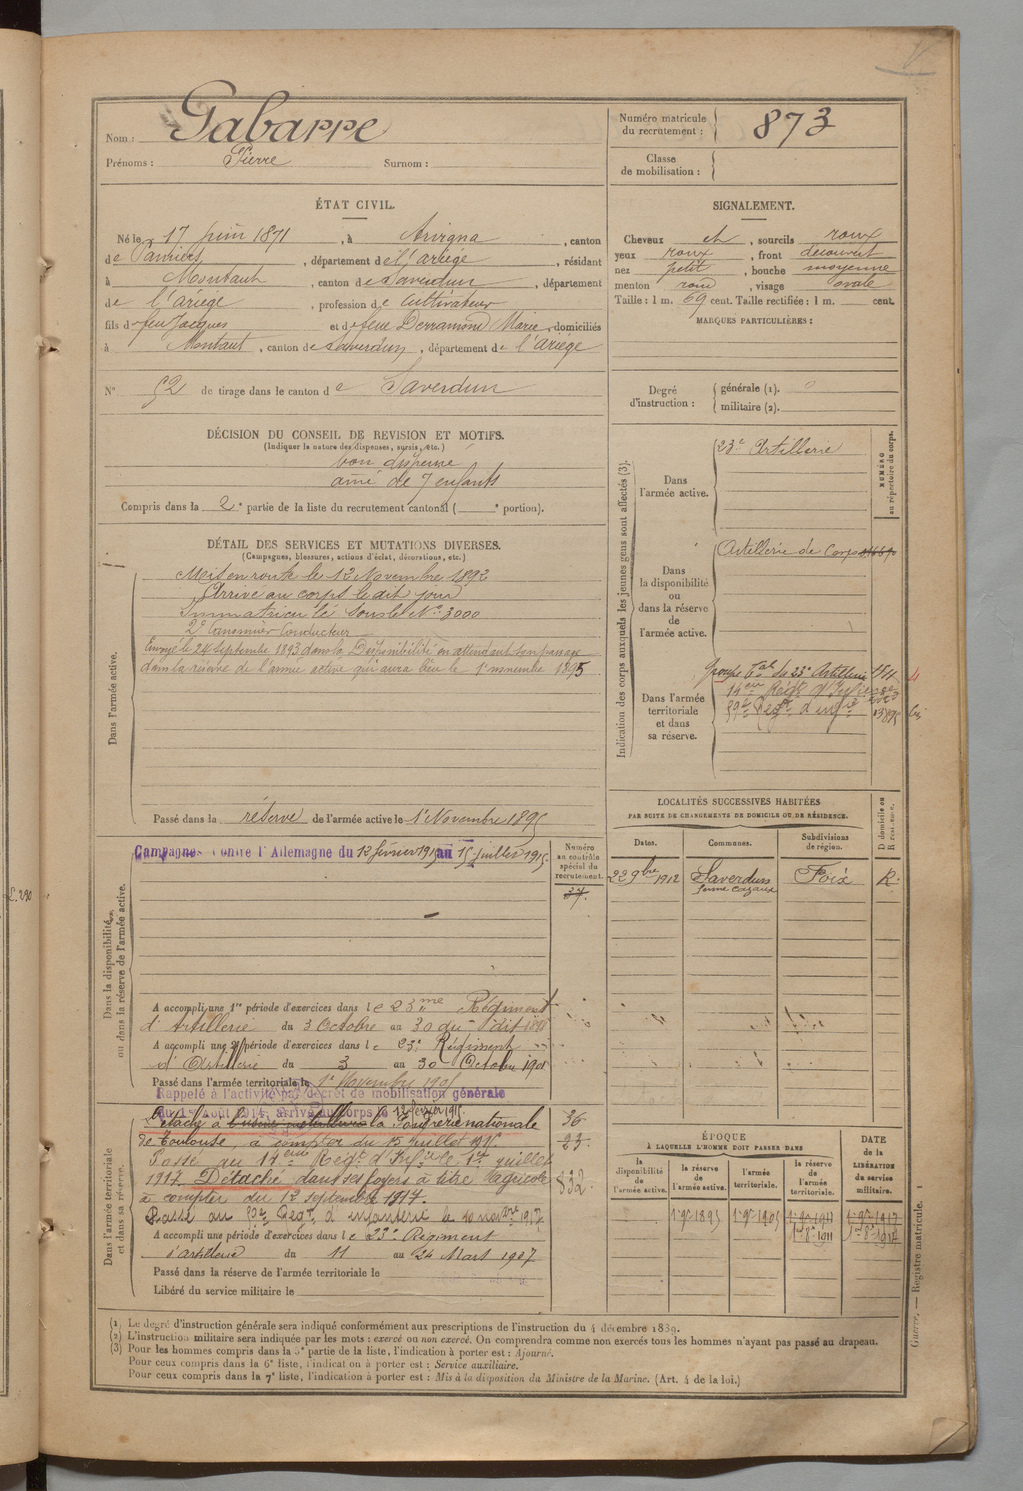 Nom : Gabarre
Prénoms : Pierre Surnom :
Numéro matricule du recrutement : 873
Classe de mobilisation :
ÉTAT CIVIL.
Né le 17 juin 1871, à Arvigna, canton
de Pamiers, département de l'ariège, résidant
à Montaut, canton de Saverdun, département
de l'ariège, profession de cultivateur
fils de feu Jacques et de feue Derramond Marie, domiciliés
à Montaut, canton de Saverdun, département de l'ariège
N° 52 de tirage dans le canton de Saverdun
SIGNALEMENT.
Cheveux et, sourcils roux
yeux roux, front découvert
nez petit, bouche moyenne
menton rond, visage ovale
Taille : 1 m. 69 cent. Taille rectifiée : 1 m. cent.
MARQUES PARTICULIÈRES :
Degré d'instruction : générale (1). 0
militaire (2).
DÉCISION DU CONSEIL DE REVISION ET MOTIFS.
(Indiquer la nature des dispenses, sursis, etc.)
bon dispensé
ainé de 7 enfants
Compris dans la 2e partie de la liste du recrutement cantonal ( e portion).
DÉTAIL DES SERVICES ET MUTATIONS DIVERSES.
(Campagnes, blessures, actions d'éclat, décorations, etc.)
Dans l'armée active.
Mis en route le 12 Novembre 1892
Arrivé au corps le dit jour
Immatriculé sous le N° 3000
2e Canonnier Conducteur
Envoyé le 24 Septembre 1893 dans la Disponibilité en attendant son passage
dans la réserve de l'armée active qui aura lieu le 1er novembre 1895
Passé dans la réserve de l'armée active le 1er Novembre 1895
Indication des corps auxquels les jeunes gens sont affectés (3).
NUMÉRO au répertoire du corps.
Dans l'armée active.
23e Artillerie
Dans la disponibilité ou dans la réserve de l'armée active.
Artillerie de Corps
Dans l'armée territoriale et dans sa réserve.
Groupe tal du 23e Artillerie
14eme Régt d'Infie
59e Régt d'infie
LOCALITÉS SUCCESSIVES HABITÉES
PAR SUITE DE CHANGEMENTS DE DOMICILE OU DE RÉSIDENCE.
Dates. Communes. Subdivisions de région. D domicile ou R résidence.
22 9bre 1912 Saverdun Foix R.
Dans la disponibilité ou dans la réserve de l'armée active.
Campagnes contre l'Allemagne du 12 février 1915 au 15 juillet 1915
Numéro au contrôle spécial du recrutement.
37.
A accompli une 1re période d'exercices dans le 23me Régiment
d'Artillerie du 3 Octobre au 30 du dit 1898
A accompli une 2e période d'exercices dans le 23e Régiment
d'Artillerie du 3 au 30 Octobre 1901
Passé dans l'armée territoriale le 1er Novembre 1905
Rappelé à l'activité par décret de mobilisation générale
du 1er Août 1914, arrivé au corps le 12 février 1915.
Dans l'armée territoriale et dans sa réserve.
Détaché à la Fonderie nationale
de Toulouse à compter du 15 Juillet 1915.
36
23.
Passé au 14eme Régt d'Infie le 1er juillet
1917. Détaché dans ses foyers à titre agricole
à compter du 12 septembre 1917.
832.
Passé au 59e Régt d'infanterie le 10 novbre 1917
A accompli une période d'exercices dans le 23e Régiment
d'artillerie du 11 au 24 Mars 1907
Passé dans la réserve de l'armée territoriale le
Libéré du service militaire le
ÉPOQUE
À LAQUELLE L'HOMME DOIT PASSER DANS
la disponibilité de l'armée active. la réserve de l'armée active. l'armée territoriale. la réserve de l'armée territoriale.
DATE de la LIBÉRATION du service militaire.
1er 9bre 1895 1er 9bre 1905 1er 9bre 1911 1er 9bre 1917
1er 8bre 1911 1er 8bre 1917
(1) Le degré d'instruction générale sera indiqué conformément aux prescriptions de l'instruction du 4 décembre 1889.
(2) L'instruction militaire sera indiquée par les mots : exercé ou non exercé. On comprendra comme non exercés tous les hommes n'ayant pas passé au drapeau.
(3) Pour les hommes compris dans la 5e partie de la liste, l'indication à porter est : Ajourné.
Pour ceux compris dans la 6e liste, l'indication à porter est : Service auxiliaire.
Pour ceux compris dans la 7e liste, l'indication à porter est : Mis à la disposition du Ministre de la Marine. (Art. 4 de la loi.)
Guerre. — Registre matricule.